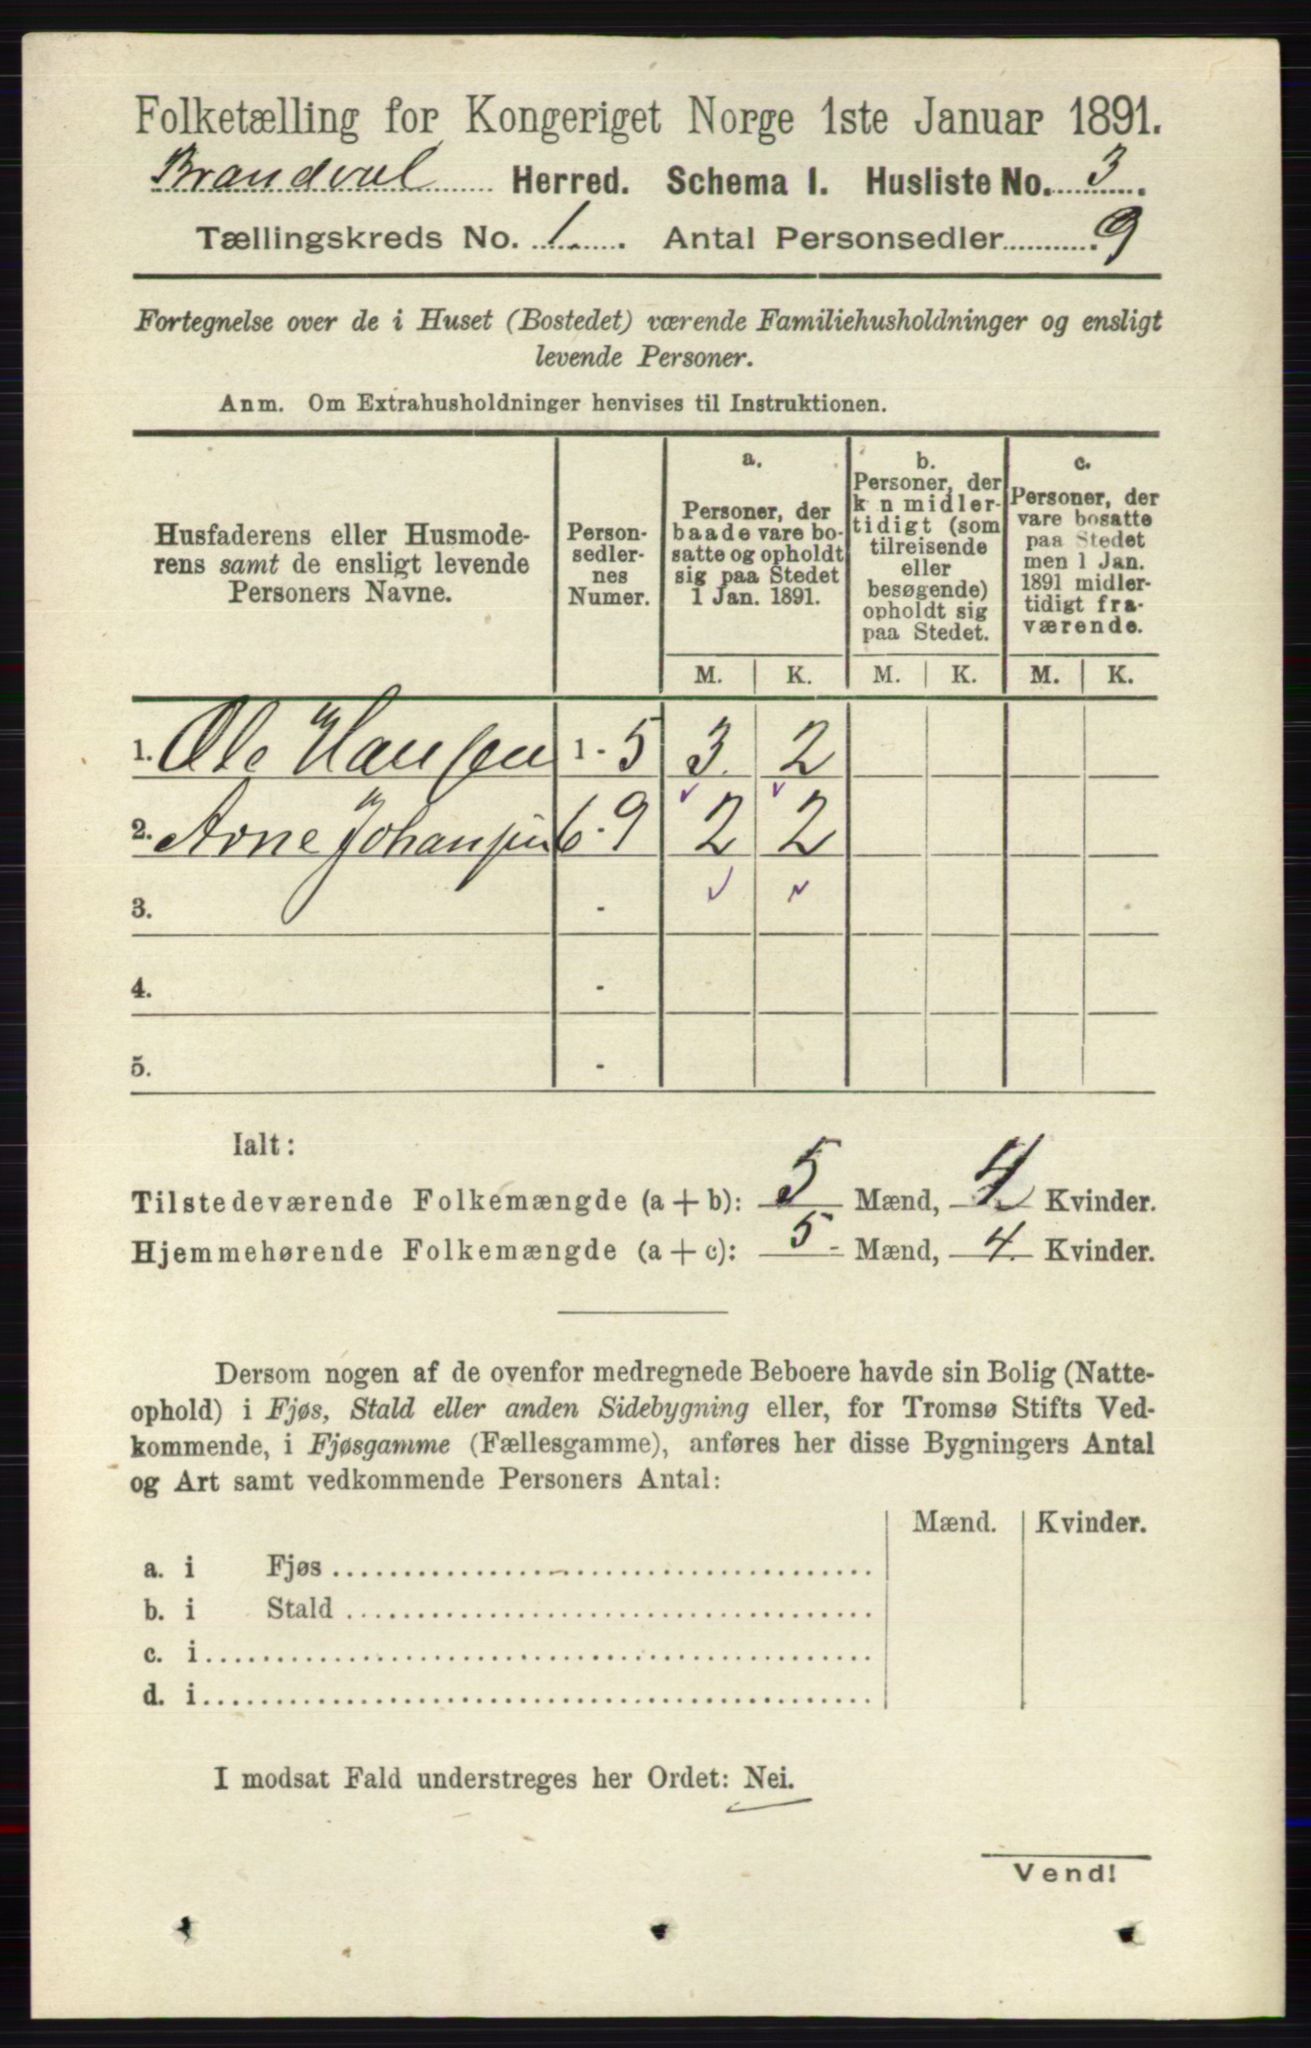 Folketælling for Kongeriget Norge 1ste Januar 1891.
Brandval Herred. Schema I. Husliste No. 3.
Tællingskreds No. 1. Antal Personsedler 9
Fortegnelse over de i Huset (Bostedet) værende Familiehusholdninger og ensligt
levende Personer.
Anm. Om Extrahusholdninger henvises til Instruktionen.
Husfaderens eller Husmode-
rens samt de ensligt levende
Personers Navne.
Person-
sedler-
nes
Numer.
a.
Personer, der
baade vare bo-
satte og opholdt
sig paa Stedet
1 Jan. 1891.
b.
Personer, der
k n midler-
tidigt (som
tilreisende
eller
besøgende)
opholdt sig
paa Stedet.
c.
Personer, der
vare bosatte
paa Stedet
men 1 Jan.
1891 midler-
tidigt fra-
værende.
M. K. M. K. M. K.
1. Ole Hansen 1-5 3 2
2. Arne Johansen 6-9 2 2
3. -
4. -
5. -
Ialt:
Tilstedeværende Folkemængde (a + b): 5 Mænd, 4 Kvinder.
Hjemmehørende Folkemængde (a + c): 5 Mænd, 4 Kvinder.
Dersom nogen af de ovenfor medregnede Beboere havde sin Bolig (Natte-
ophold) i Fjøs, Stald eller anden Sidebygning eller, for Tromsø Stifts Ved-
kommende, i Fjøsgamme (Fællesgamme), anføres her disse Bygningers Antal
og Art samt vedkommende Personers Antal:
Mænd. Kvinder.
a. i Fjøs
b. i Stald
c. i
d. i
I modsat Fald understreges her Ordet: Nei.
Vend!